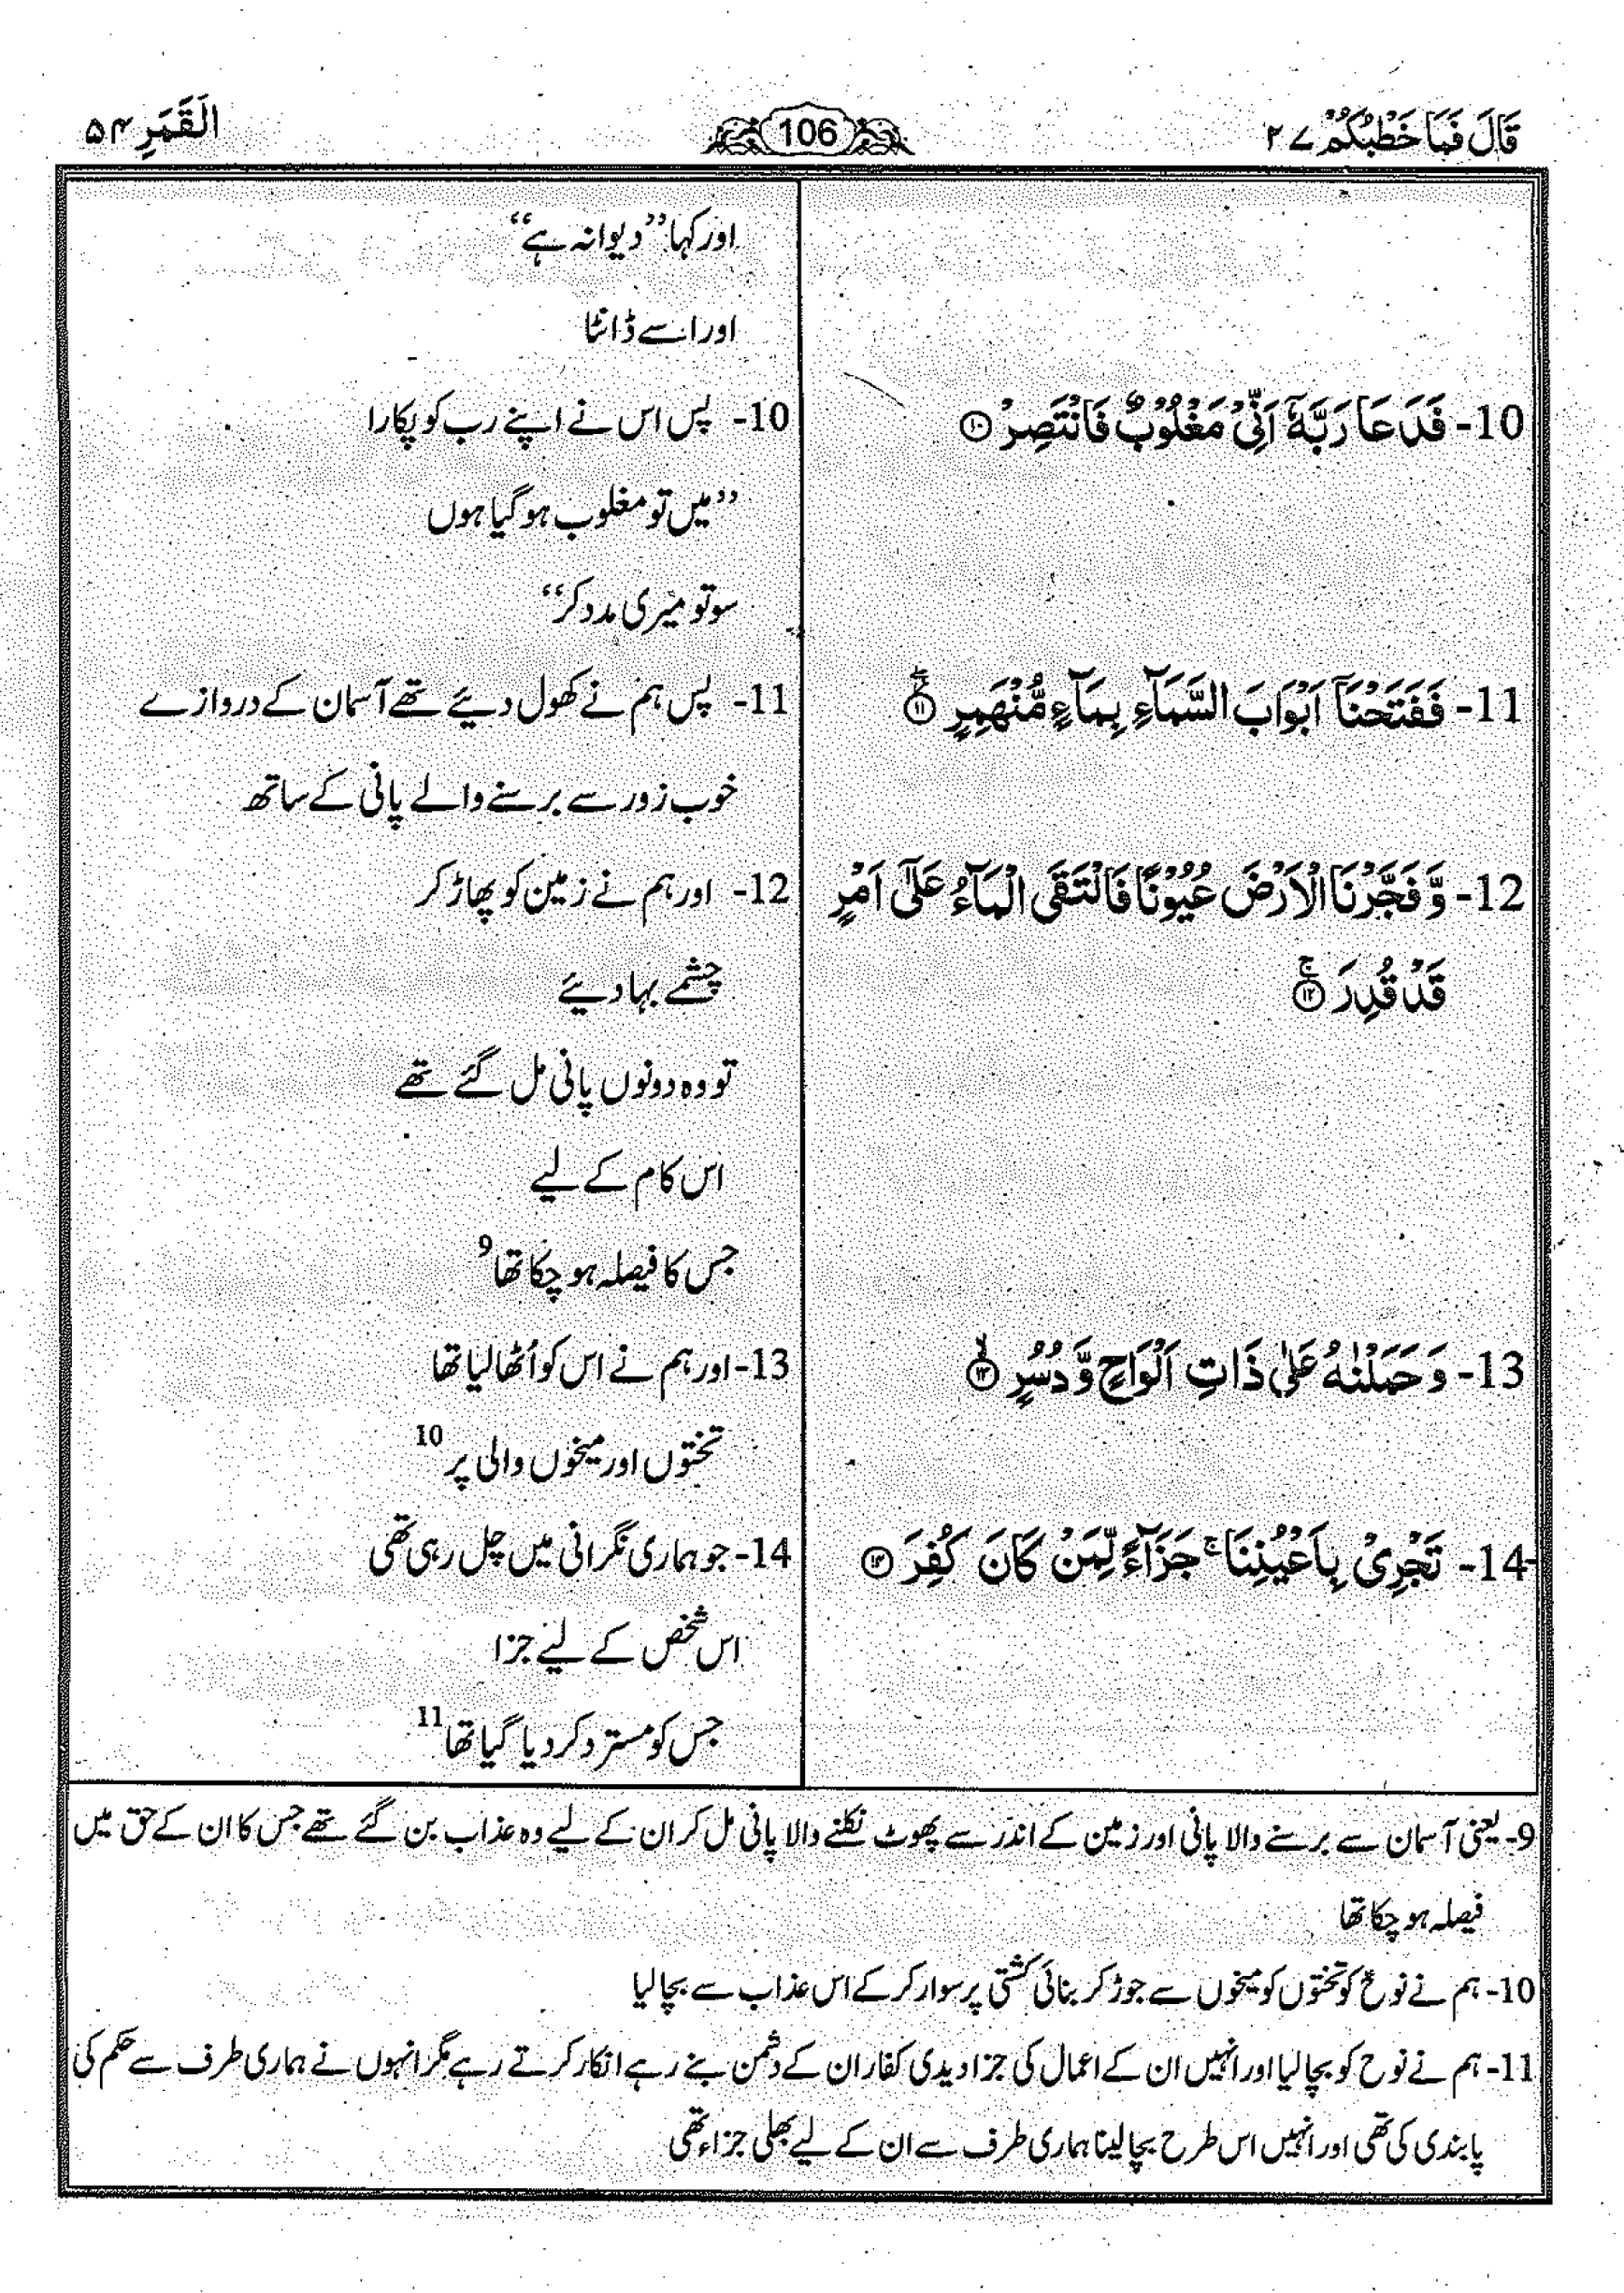 قَالَ فَمَا خَطْبُكُمْ ۲۷
106
الْقَمَرِ ۵۴
اور کہا ”دیوانہ ہے“
اور اسے ڈانٹا
10- فَدَعَا رَبَّهٗۤ اَنِّیْ مَغْلُوْبٌ فَانْتَصِرْ ۝۱۰
10- پس اس نے اپنے رب کو پکارا
”میں تو مغلوب ہو گیا ہوں
سو تو میری مدد کر“
11- فَفَتَحْنَاۤ اَبْوَابَ السَّمَآءِ بِمَآءٍ مُّنْهَمِرٍ ۝۱۱
11- پس ہم نے کھول دیئے تھے آسمان کے دروازے
خوب زور سے برسنے والے پانی کے ساتھ
12- وَّ فَجَّرْنَا الْاَرْضَ عُیُوْنًا فَالْتَقَی الْمَآءُ عَلٰۤی اَمْرٍ
قَدْ قُدِرَ ۝۱۲
12- اور ہم نے زمین کو پھاڑ کر
چشمے بہا دیئے
تو وہ دونوں پانی مل گئے تھے
اس کام کے لیے
جس کا فیصلہ ہو چکا تھا 9
13- وَ حَمَلْنٰهُ عَلٰی ذَاتِ اَلْوَاحٍ وَّ دُسُرٍ ۝۱۳
13- اور ہم نے اس کو اُٹھا لیا تھا
تختوں اور میخوں والی پر 10
14- تَجْرِیْ بِاَعْیُنِنَا ۚ جَزَآءً لِّمَنْ كَانَ كُفِرَ ۝۱۴
14- جو ہماری نگرانی میں چل رہی تھی
اس شخص کے لیے جزا
جس کو مسترد کر دیا گیا تھا 11
9- یعنی آسمان سے برسنے والا پانی اور زمین کے اندر سے پھوٹ نکلنے والا پانی مل کر ان کے لیے وہ عذاب بن گئے تھے جس کا ان کے حق میں
فیصلہ ہو چکا تھا
10- ہم نے نوحؑ کو تختوں کو میخوں سے جوڑ کر بنائی کشتی پر سوار کر کے اس عذاب سے بچا لیا
11- ہم نے نوح کو بچا لیا اور انہیں ان کے اعمال کی جزا دیدی کفار ان کے دشمن بنے رہے انکار کرتے رہے مگر انہوں نے ہماری طرف سے حکم کی
پابندی کی تھی اور انہیں اس طرح بچا لینا ہماری طرف سے ان کے لیے بھلی جزاء تھی